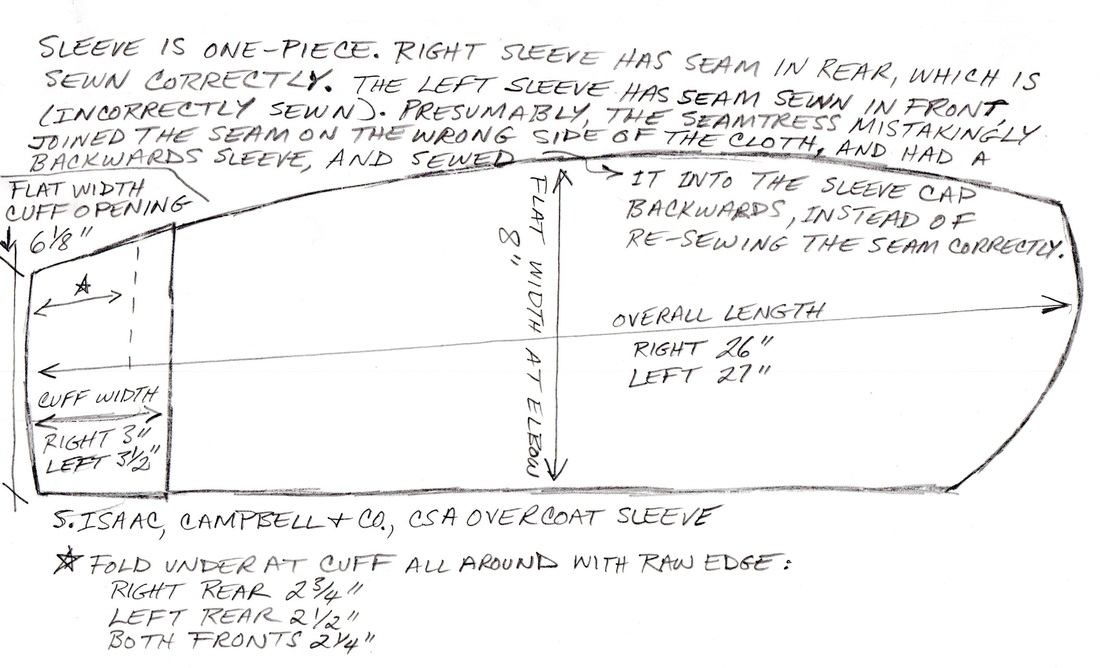 SLEEVE IS ONE-PIECE. RIGHT SLEEVE HAS SEAM IN REAR, WHICH IS
SEWN CORRECTLY. THE LEFT SLEEVE HAS SEAM SEWN IN FRONT,
(INCORRECTLY SEWN). PRESUMABLY, THE SEAMTRESS MISTAKINGLY
JOINED THE SEAM ON THE WRONG SIDE OF THE CLOTH, AND HAD A
BACKWARDS SLEEVE, AND SEWED
IT INTO THE SLEEVE CAP
BACKWARDS, INSTEAD OF
RE-SEWING THE SEAM CORRECTLY.
FLAT WIDTH
CUFF OPENING
6 1/8"
☆
FLAT WIDTH AT ELBOW
8"
OVERALL LENGTH
RIGHT 26"
LEFT 27"
CUFF WIDTH
RIGHT 3"
LEFT 3 1/2"
S. ISAAC, CAMPBELL & CO., CSA OVERCOAT SLEEVE
☆ FOLD UNDER AT CUFF ALL AROUND WITH RAW EDGE:
RIGHT REAR 2 3/4"
LEFT REAR 2 1/2"
BOTH FRONTS 2 1/4"